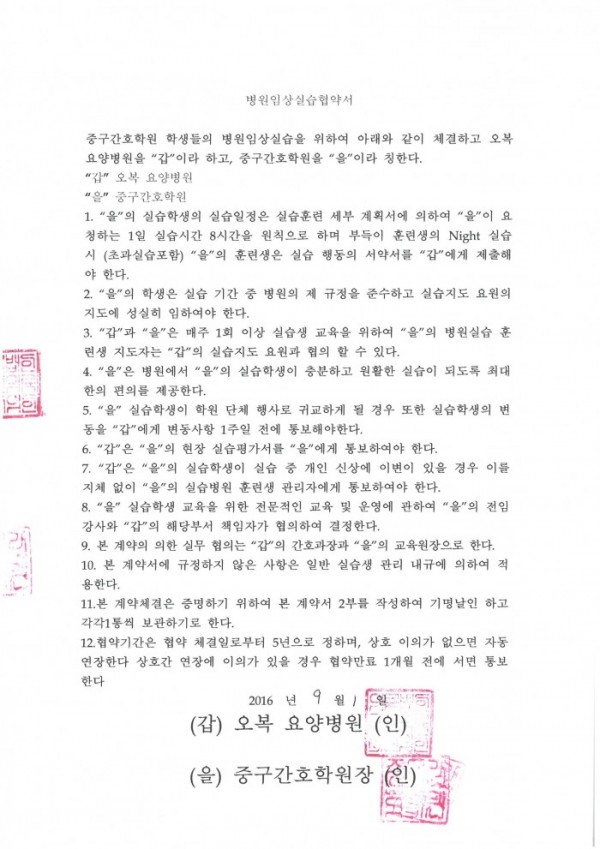 병원임상실습협약서
중구간호학원 학생들의 병원임상실습을 위하여 아래와 같이 체결하고 오복
요양병원을 “갑”이라 하고, 중구간호학원을 “을”이라 칭한다.
“갑” 오복 요양병원
“을” 중구간호학원
1. “을”의 실습학생의 실습일정은 실습훈련 세부 계획서에 의하여 “을”이 요
청하는 1일 실습시간 8시간을 원칙으로 하며 부득이 훈련생의 Night 실습
시 (초과실습포함) “을”의 훈련생은 실습 행동의 서약서를 “갑”에게 제출해
야 한다.
2. “을”의 학생은 실습 기간 중 병원의 제 규정을 준수하고 실습지도 요원의
지도에 성실히 임하여야 한다.
3. “갑”과 “을”은 매주 1회 이상 실습생 교육을 위하여 “을”의 병원실습 훈
련생 지도자는 “갑”의 실습지도 요원과 협의 할 수 있다.
4. “을”은 병원에서 “을”의 실습학생이 충분하고 원활한 실습이 되도록 최대
한의 편의를 제공한다.
5. “을” 실습학생이 학원 단체 행사로 귀교하게 될 경우 또한 실습학생의 변
동을 “갑”에게 변동사항 1주일 전에 통보해야한다.
6. “갑”은 “을”의 현장 실습평가서를 “을”에게 통보하여야 한다.
7. “갑”은 “을”의 실습학생이 실습 중 개인 신상에 이변이 있을 경우 이를
지체 없이 “을”의 실습병원 훈련생 관리자에게 통보하여야 한다.
8. “을” 실습학생 교육을 위한 전문적인 교육 및 운영에 관하여 “을”의 전임
강사와 “갑”의 해당부서 책임자가 협의하여 결정한다.
9. 본 계약의 의한 실무 협의는 “갑”의 간호과장과 “을”의 교육원장으로 한다.
10. 본 계약서에 규정하지 않은 사항은 일반 실습생 관리 내규에 의하여 적
용한다.
11.본 계약체결은 증명하기 위하여 본 계약서 2부를 작성하여 기명날인 하고
각각1통씩 보관하기로 한다.
12.협약기간은 협약 체결일로부터 5년으로 정하며, 상호 이의가 없으면 자동
연장한다 상호간 연장에 이의가 있을 경우 협약만료 1개월 전에 서면 통보
한다
2016 년 9 월 1 일
(갑) 오복 요양병원 (인)
(을) 중구간호학원장 (인)